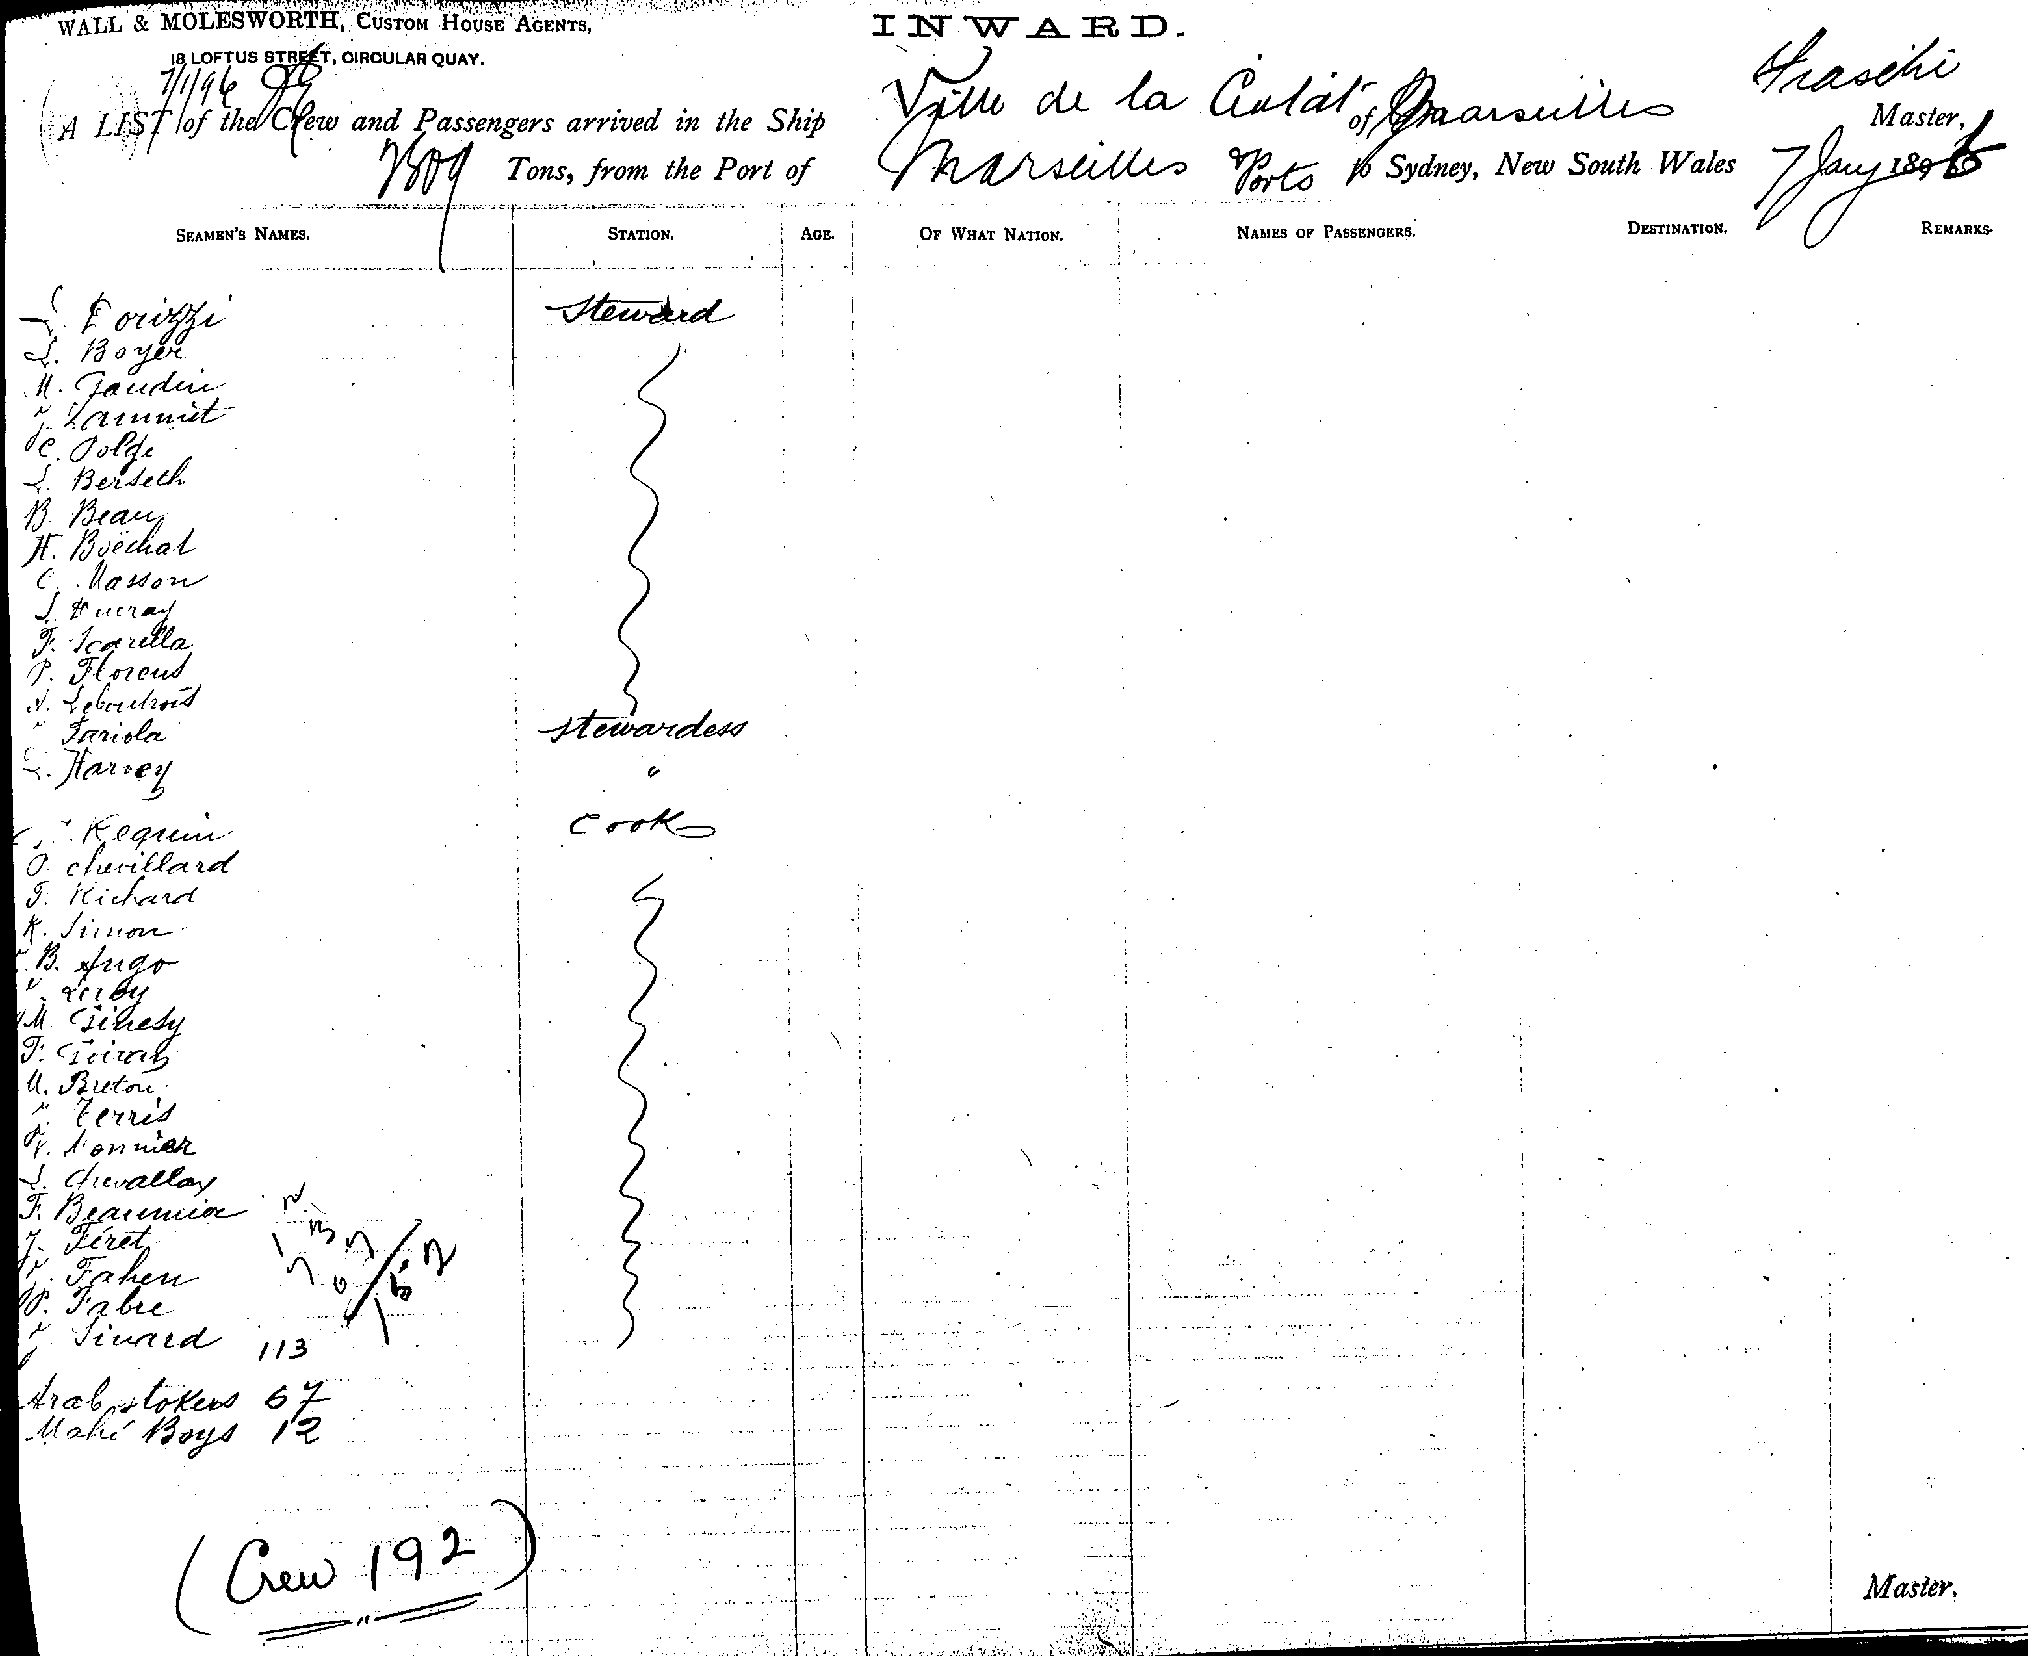 WALL & MOLESWORTH, CUSTOM HOUSE AGENTS,
INWARD.
18 LOFTUS STREET, CIRCULAR QUAY.
7/1/96
Fraschi
A LIST of the Crew and Passengers arrived in the Ship Ville de la Ciotat of Marseilles Master,
2809 Tons, from the Port of Marseilles & Ports to Sydney, New South Wales 7 Jany 1896
SEAMEN'S NAMES. STATION. AGE. OF WHAT NATION. NAMES OF PASSENGERS. DESTINATION. REMARKS.
Steward
L. Boyer
M. Gaudin
J. Zammit
C. Polge
L. Berseth
B. Beau
H. Boechat
C. Masson
F. Scarella
P. Florens
Fariola stewardess
L. Harvey "
Requin Cook
O. Chevillard
F. Richard
R. Simon
B. Hugo
M. Ginesy
F. Giiran
M. Breton
Terris
Monnier
L. Chevallay
F. Beaumier
J. Féret
Fahen
P. Fabre
Sivard 113
Arab stokers 67
Mahé Boys 12
(Crew 192)
Master.